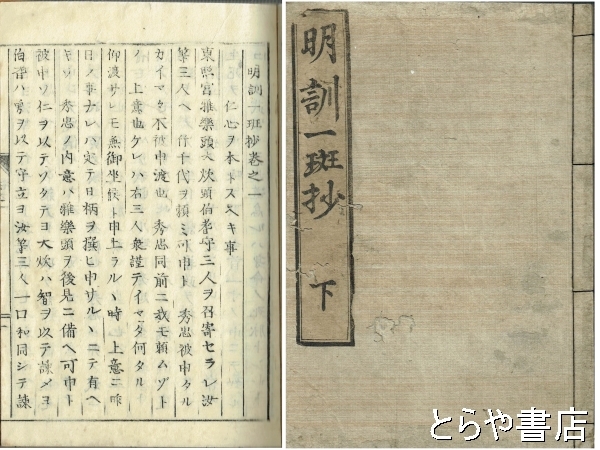 明訓一斑抄巻之一
仁心ヲ本トスヘキ事
東照宮雅樂頭大炊頭伯耆守三人ヲ召寄セラレ汝
等三人ヘ竹千代ヲ頼ミ可申ト 秀忠被申タル
カイマタ不被申渡也 秀忠同前ニ我モ頼ムゾト
ノ 上意也ケレハ右三人衆謹テイマダ何タル
仰渡サレモ無御坐候ト申上ラルヽ時 上意ニ昨
日ノ事ナレハ定テ日柄ヲ撰ヒ申サルヽニテ有ヘ
秀忠ノ内意ハ雅樂頭ヲ後見ニ備ヘ可申ト
被申ソ仁ヲ以テソタテヨ大炊ハ智ヲ以テ諫メヨ
伯耆ハ勇ヲ以テ守立ヨ汝等三人一口和同シテ諫
明訓一斑抄 下
とらや書店